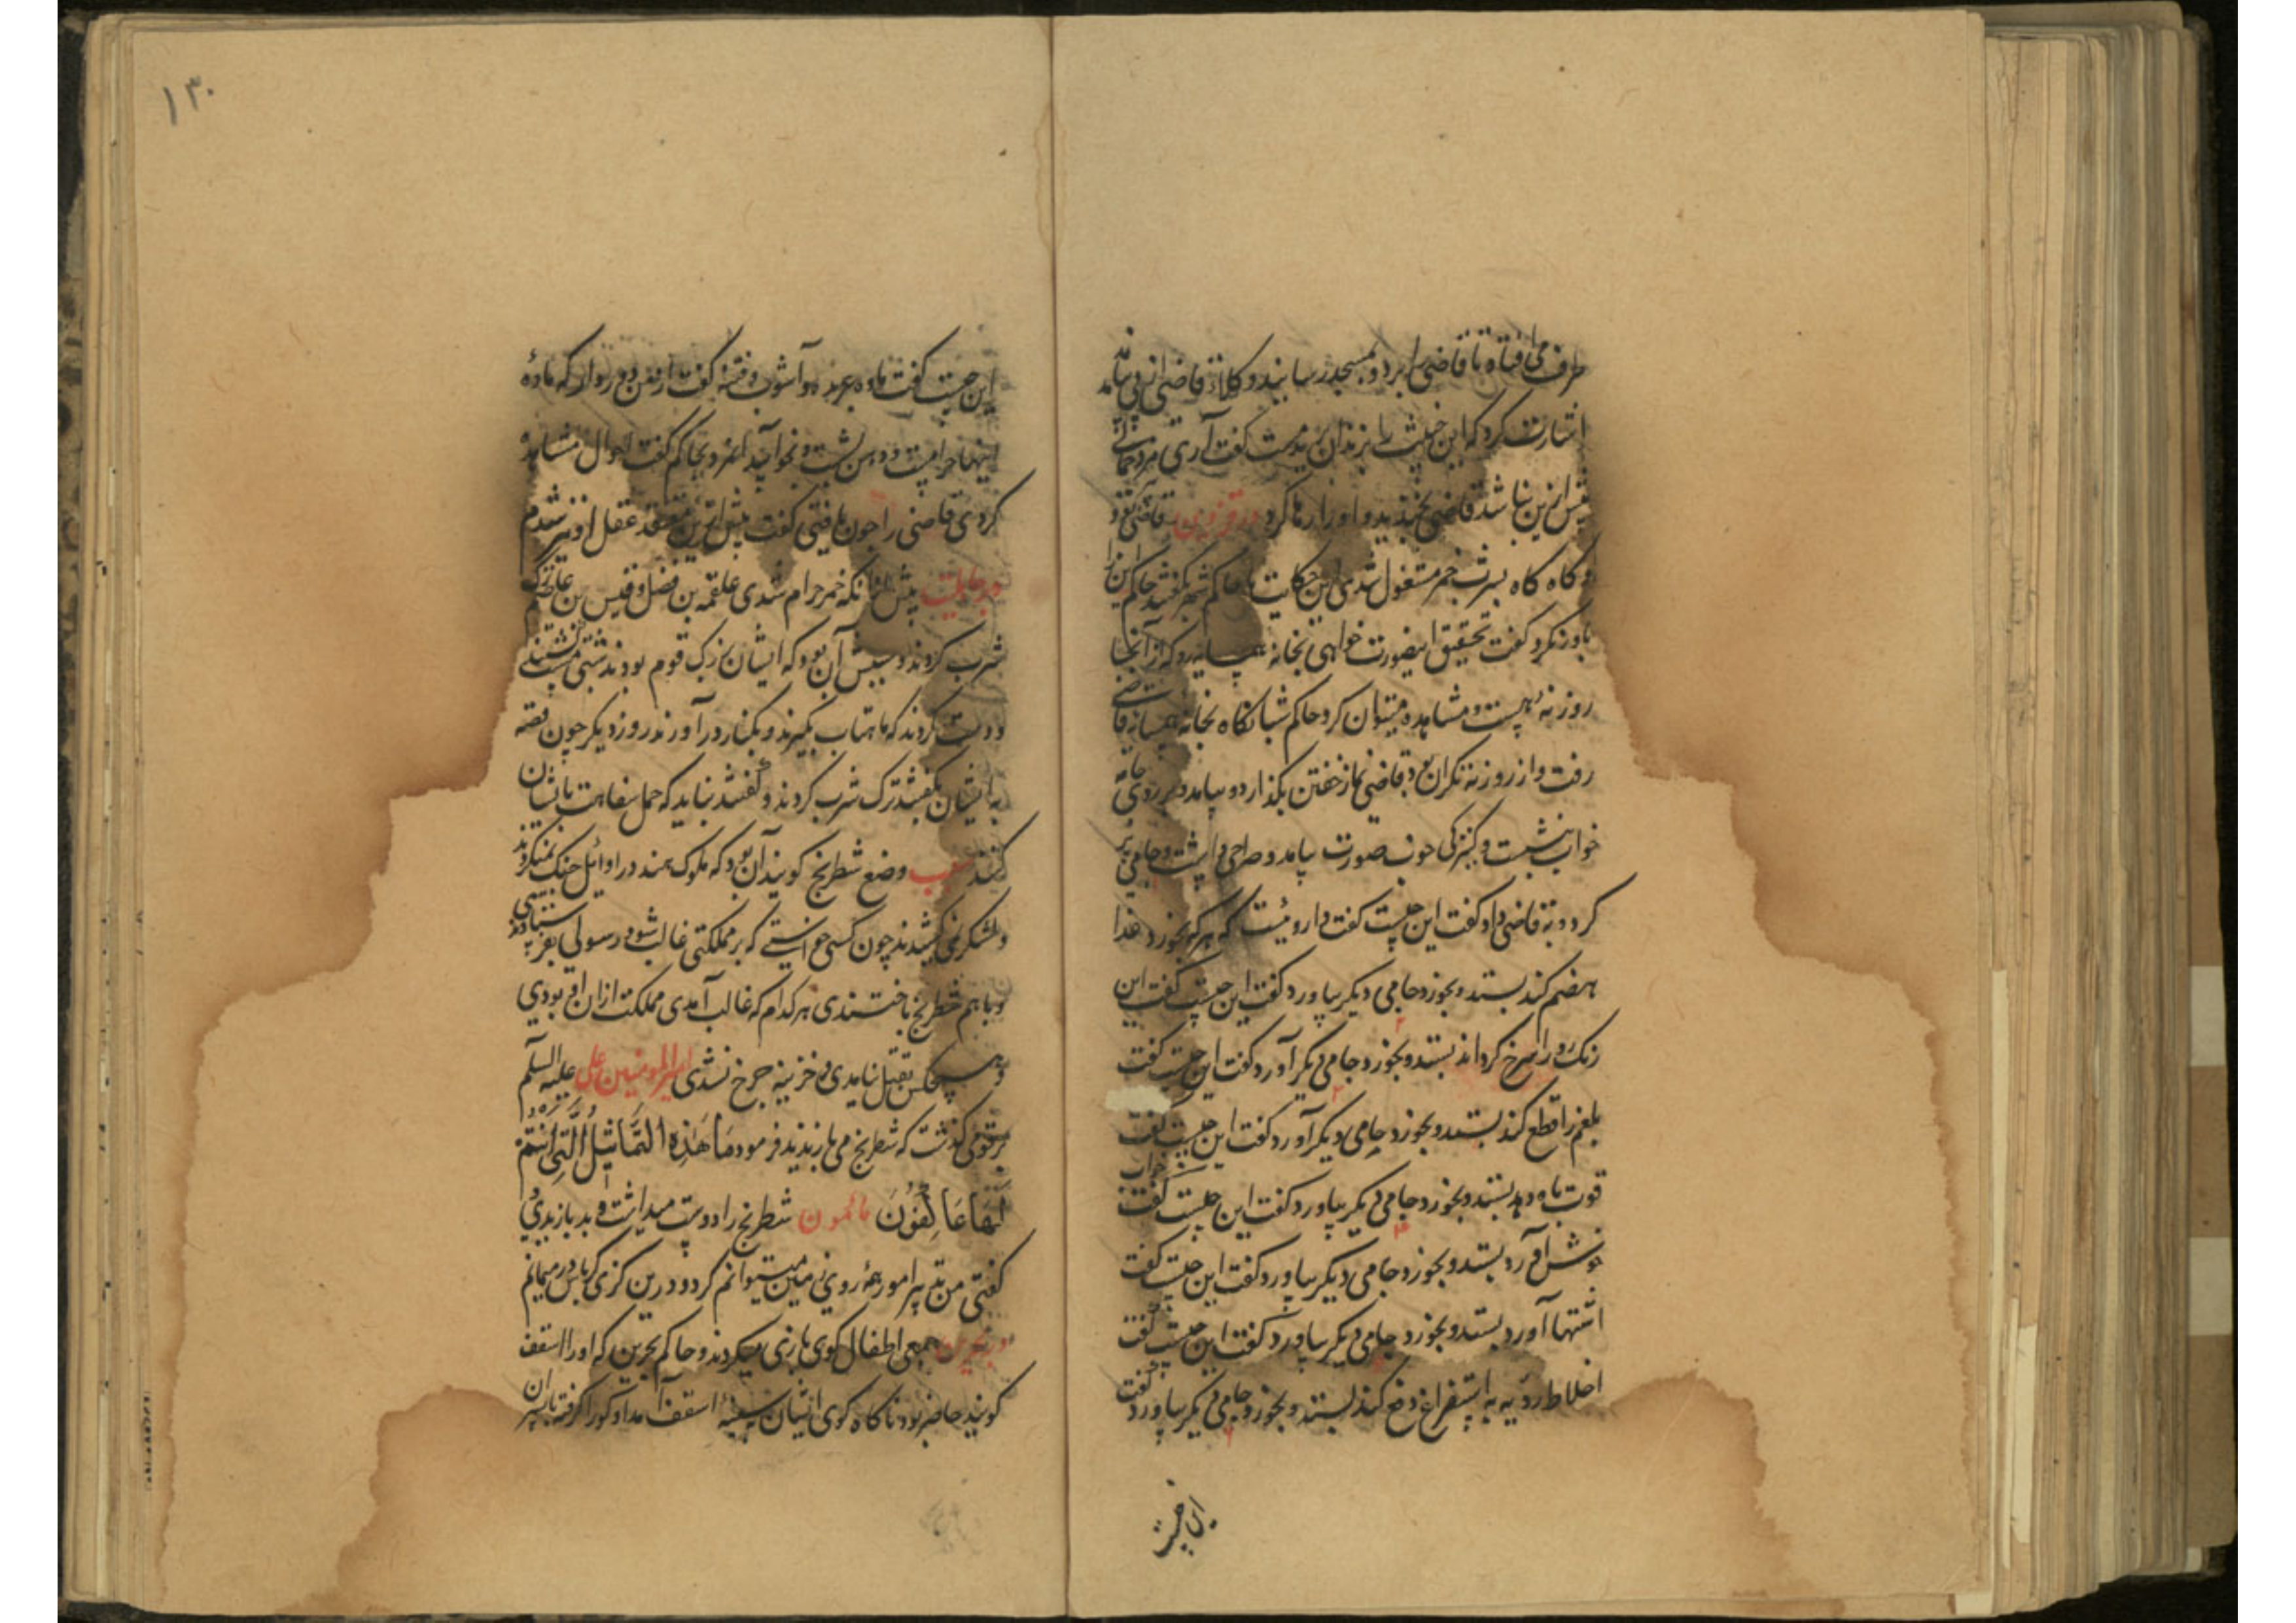 طرف می افتاد تا قاضی را ببرد و بمسجد رسانید و وکلاء قاضی از پی بیامدند
اشارت کرد که این خبیث را بزندان برید مست گفت آری مرد
پیش ازین نباشد قاضی بخندید و او را رها کرد در قزوین قاضی بود
و گاه گاه بسرب خمر مشغول شدی این حکایت با حاکم شهر بگفتند حاکم این را
باور نکرد گفت تحقیق اینصورت خواهی بخانه همسایه رو که از آنجا
روزنه هست و مشاهده میتوان کرد حاکم شبانگاه بخانه همسایه قاضی
رفت و از روزنه نگران بود قاضی نماز خفتن بگذارد و بیامد و بر روی جامه
خواب بنشست و کنیزکی خوب صورت بیامد و صراحی در پشت و جامی پر
کرد و به قاضی داد گفت این چیست گفت داروئیست که هر که بخورد غذا
هضم کند بستد و بخورد جامی دیگر بیاورد گفت این چیست گفت این
رنگ رو را سرخ گرداند بستد و بخورد جامی دیگر آورد گفت این چیست گفت
بلغم را قطع کند بستد و بخورد جامی دیگر آورد گفت این چیست گفت
قوت باه دهد بستد و بخورد جامی دیگر بیاورد گفت این چیست گفت خواب
خوش آورد بستد و بخورد جامی دیگر بیاورد گفت این چیست گفت
اشتها آورد بستد و بخورد جامی دیگر بیاورد گفت این چیست گفت
اخلاط ردیه به استفراغ دفع کند بستد و بخورد جامی دیگر بیاورد گفت
این چیست
۱۳۰
این چیست گفت ماده عربده و آشوب و فتنه گفت از من دور دار که ماده
اینها حرامست و دهن بشست و بخوابید حاکم گفت احوال مشاهده
کردی قاضی را چون یافتی گفت پیش ازین معتقد عقل او نیز شدم
در جاهلیت پیش از آنکه خمر حرام شدی علقمه بن فضل و قیس بن عاصم ترک
شرب کردند و سببش آن بود که ایشان بزرگ قوم بودند شبی مست گشتند
و دست کردند که ماهتاب بگیرند و بکنار در آورند روز دیگر چون قصه
به ایشان بگفتند ترک شرب کردند و گفتند نباید که حمل سفاهت باشان
کنند سبب وضع شطرنج گویند آن بود که ملوک هند در اوائل جنگ نمیکردند
و لشکر نمی کشیدند چون کسی خواستی که بر مملکتی غالب شود رسولی بفرستادندی
و با هم شطرنج باختندی هر کدام که غالب آمدی مملکت از ان او بودی
و هیچکس بقتل نیامدی و خزینه خرج نشدی امیر المومنین علی علیه السلم
بر قومی گذشت که شطرنج می بازیدند فرمود مَا هَذِهِ التَّمَاثِيلُ الَّتِي أَنْتُمْ
لَهَا عَاكِفُونَ مأمون شطرنج را دوست میداشت و بد بازیدی
گفتی من تدبیر امور همه روی زمین میتوانم کرد و درین گزی کرباس در میمانم
در بحرین جمعی اطفال گوی بازی میکردند و حاکم بحرین که او را اسقف
گویند حاضر بود ناگاه گوی ایشان بسینه اسقف آمد او گو را گرفته با پسران